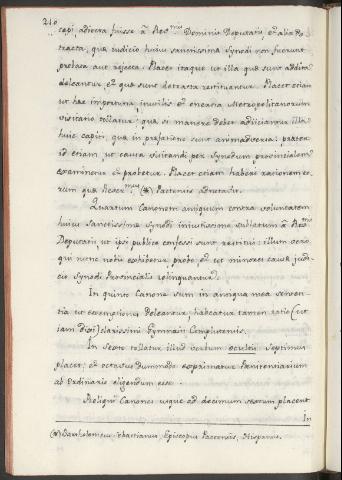 240
capi, adiecta fuisse à Res.mis Dominis Deputatis, et alia de-
tracta, quæ iudicio huius sanctissimæ Synodi non fuerunt
probata aut reiecta. Placet itaque ut illa quæ sunt addita
deleantur, et quæ sunt detracta restituantur. Placet etiam
ut hæc importuna, inutilis et onerosa Metropolitanorum
visitatio tollatur: quæ si manere debet adiiciantur illa
huic capiti, quæ in præfatione sunt animadversa: præter
id etiam ut causa visitandi per Synodum provincialem
examinetur et probetur. Placet etiam habere rationem eo-
rum quæ Rever.mus (*) Pacensis adnotavit.
Quartum Canonem antiquum contra voluntatem
huius Sanctissimæ Synodi iniustissime sublatum à Res.mis
Deputatis, ut ipsi publice confessi sunt restitui: illum vero
qui nunc nobis exhibetur, probo et ut minores causæ judi-
cio Synodi Provincialis relinquantur.
In quinto Canone sum in antiqua mea senten-
tia ut exemptiones deleantur, habeatur tamen ratio (ut
iam dixi) clarissimi Gymnasii Complutensis.
In Sexto tollatur illud verbum occultis Septimus
placet, et octavus dummodo exprimatur Pœnitentiarium
ab Ordinario eligendum esse.
Reliqui Canones usque ad decimum sextum placent
In
(*) Bartholomeus Sebastianus, Episcopus Pactensis, Hispanus.